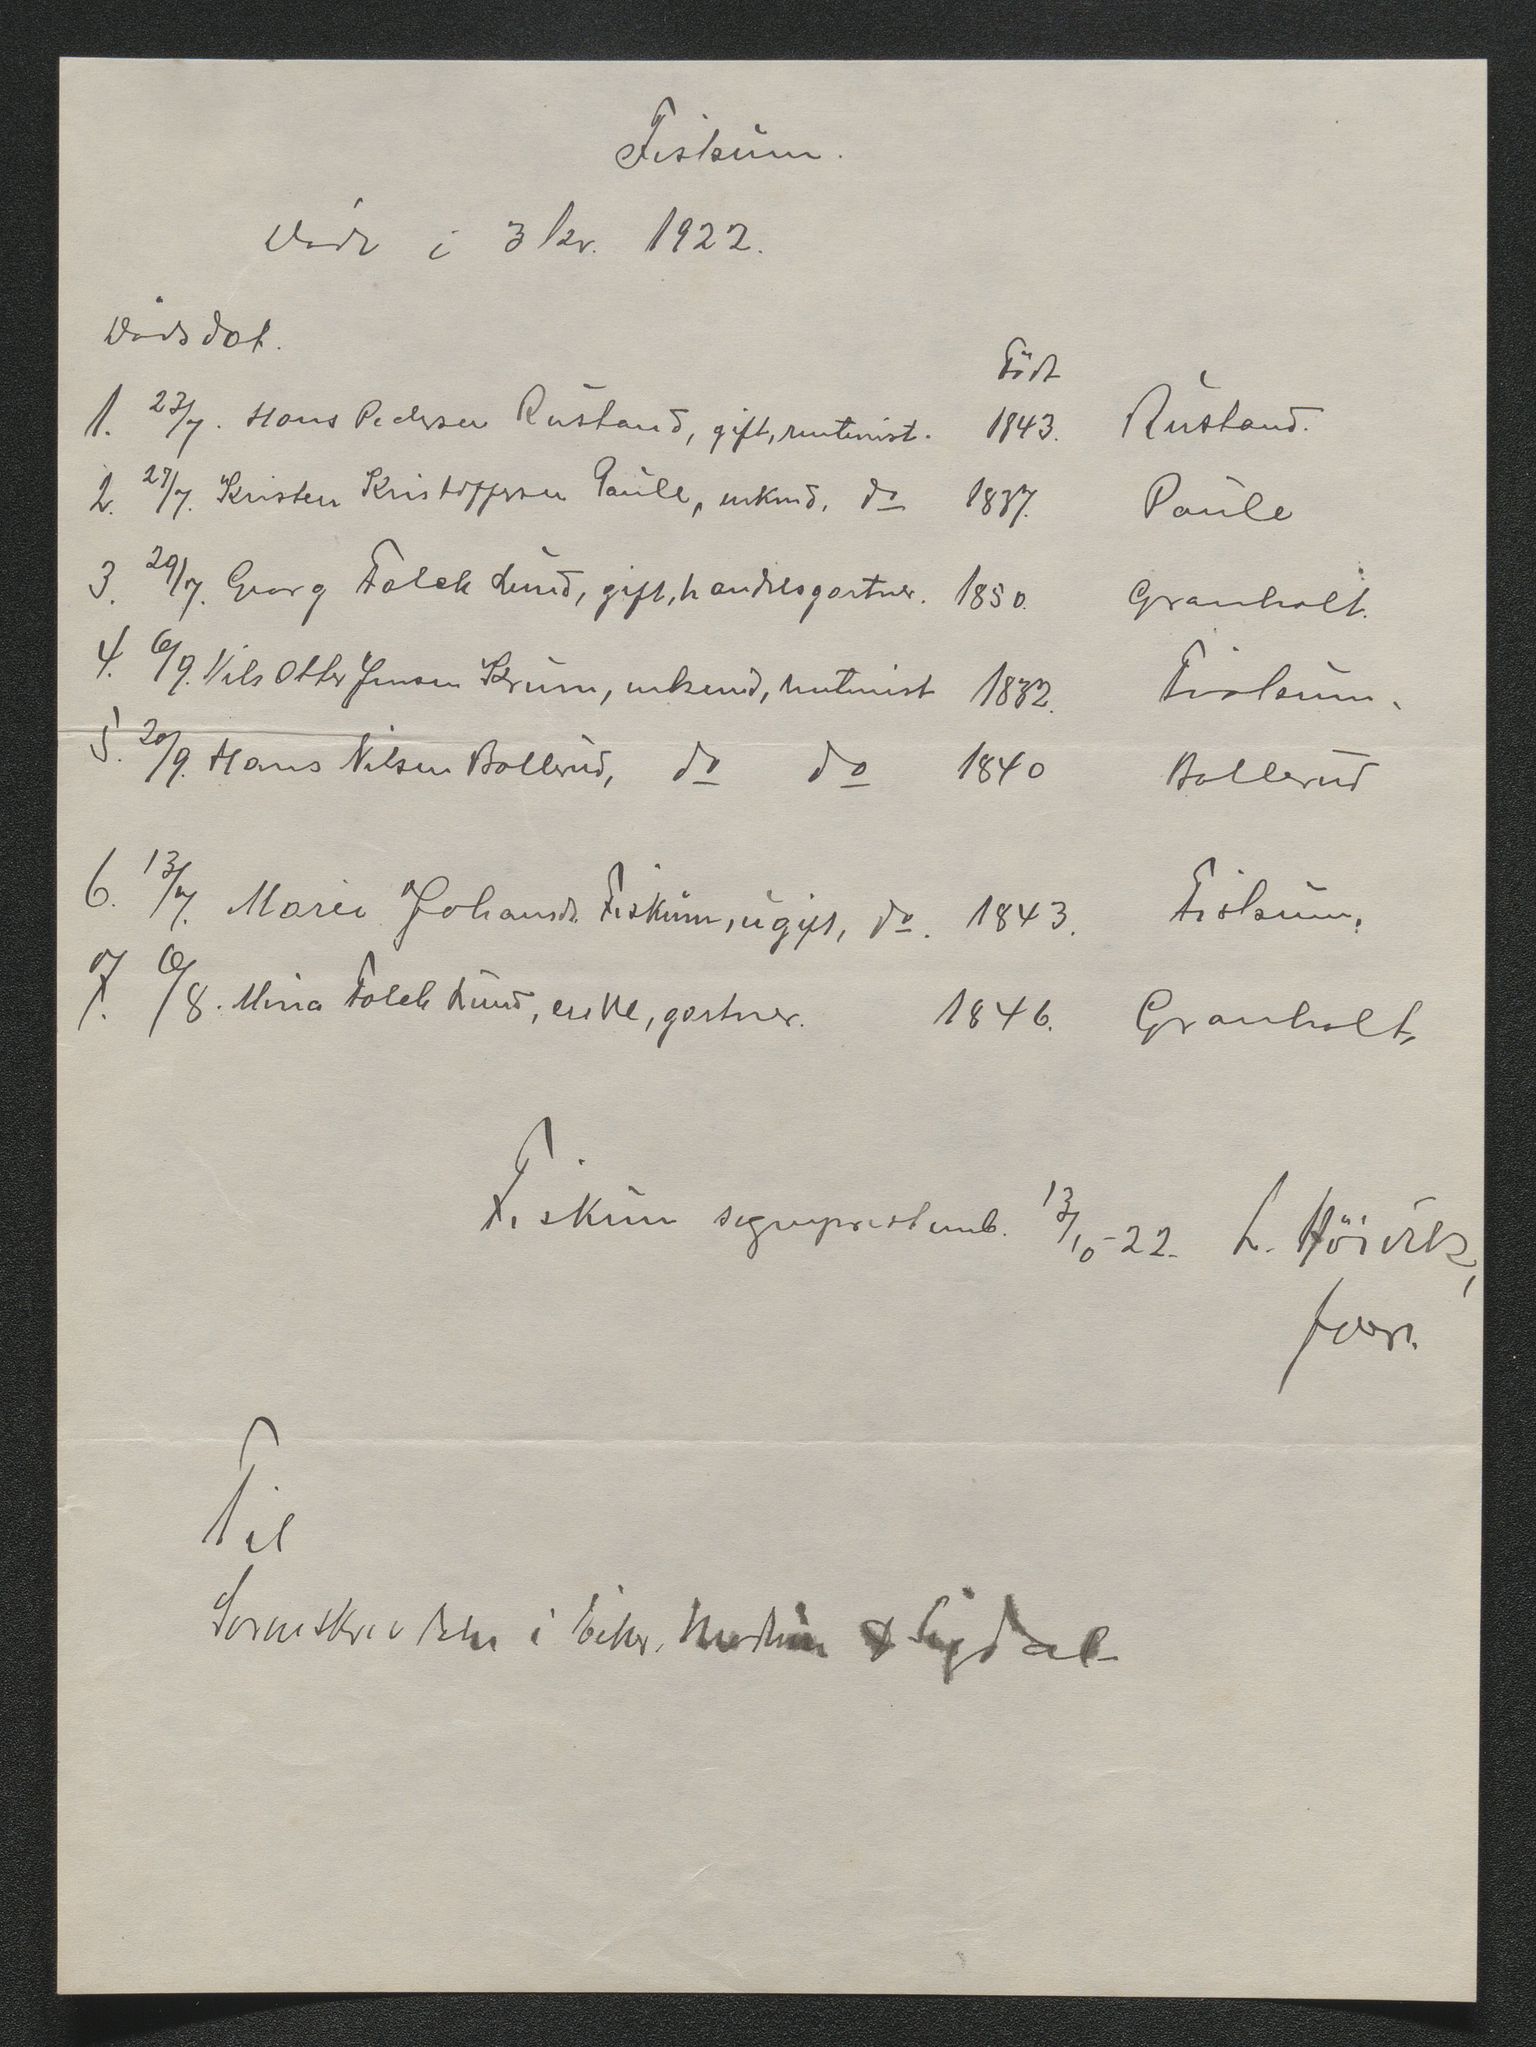 Fiskum.
Døde i 3 kv. 1922.
Dødsdat.
Født
1. 23/7. Hans Pedersen Rustand, gift, rentenist. 1843. Rustand.
2. 27/7. Kristen Kristoffersen Paule, enkmd. do 1837. Paule
3. 29/7. Georg Falck Lund, gift, handelsgartner. 1850. Granholt.
4. 6/9. Nils Otter Jensen Krum, enkemd, rentenist 1832. Fiskum.
5. 20/9. Hans Nilsen Bollerud, do do 1840 Bollerud
6. 13/7. Maria Johansd. Fiskum, ugift, do. 1843. Fiskum.
7. 6/8. Mina Falck Lund, enke, gartner. 1846. Granholt,
Fiskum sogneprestemb. 13/10-22. L. Höivik,
Til
Sorenskriveren i Eiker, Modum & Sigdal